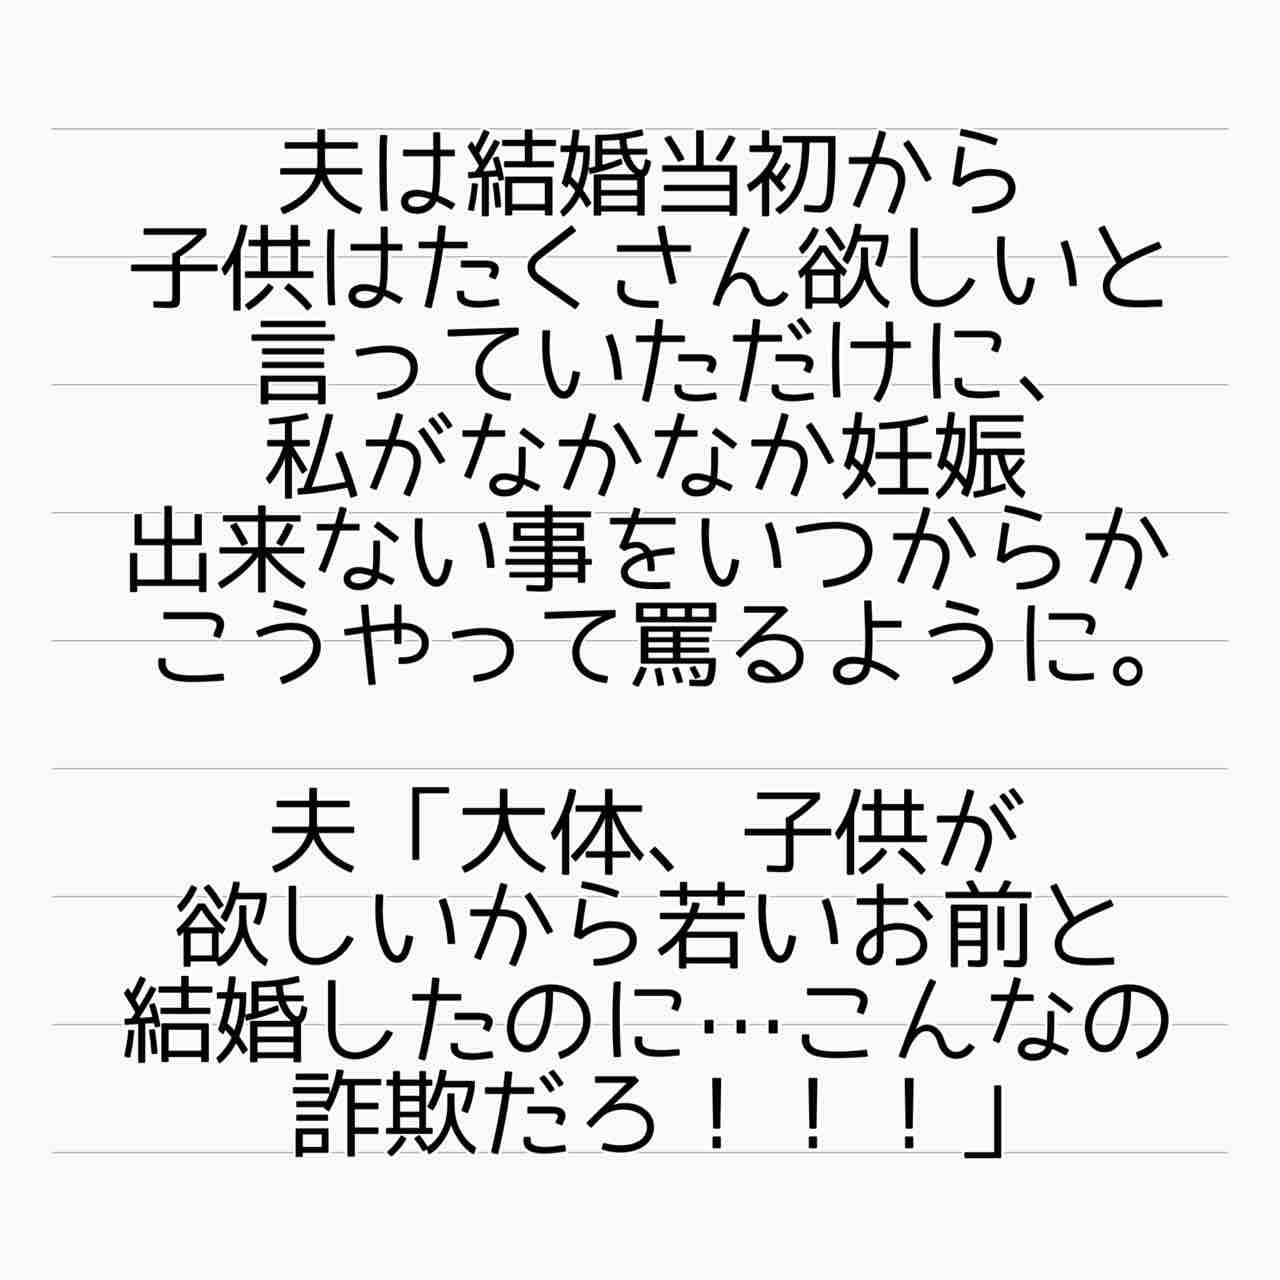 夫は結婚当初から
子供はたくさん欲しいと
言っていただけに、
私がなかなか妊娠
出来ない事をいつからか
こうやって罵るように。
夫「大体、子供が
欲しいから若いお前と
結婚したのに…こんなの
詐欺だろ！！！」